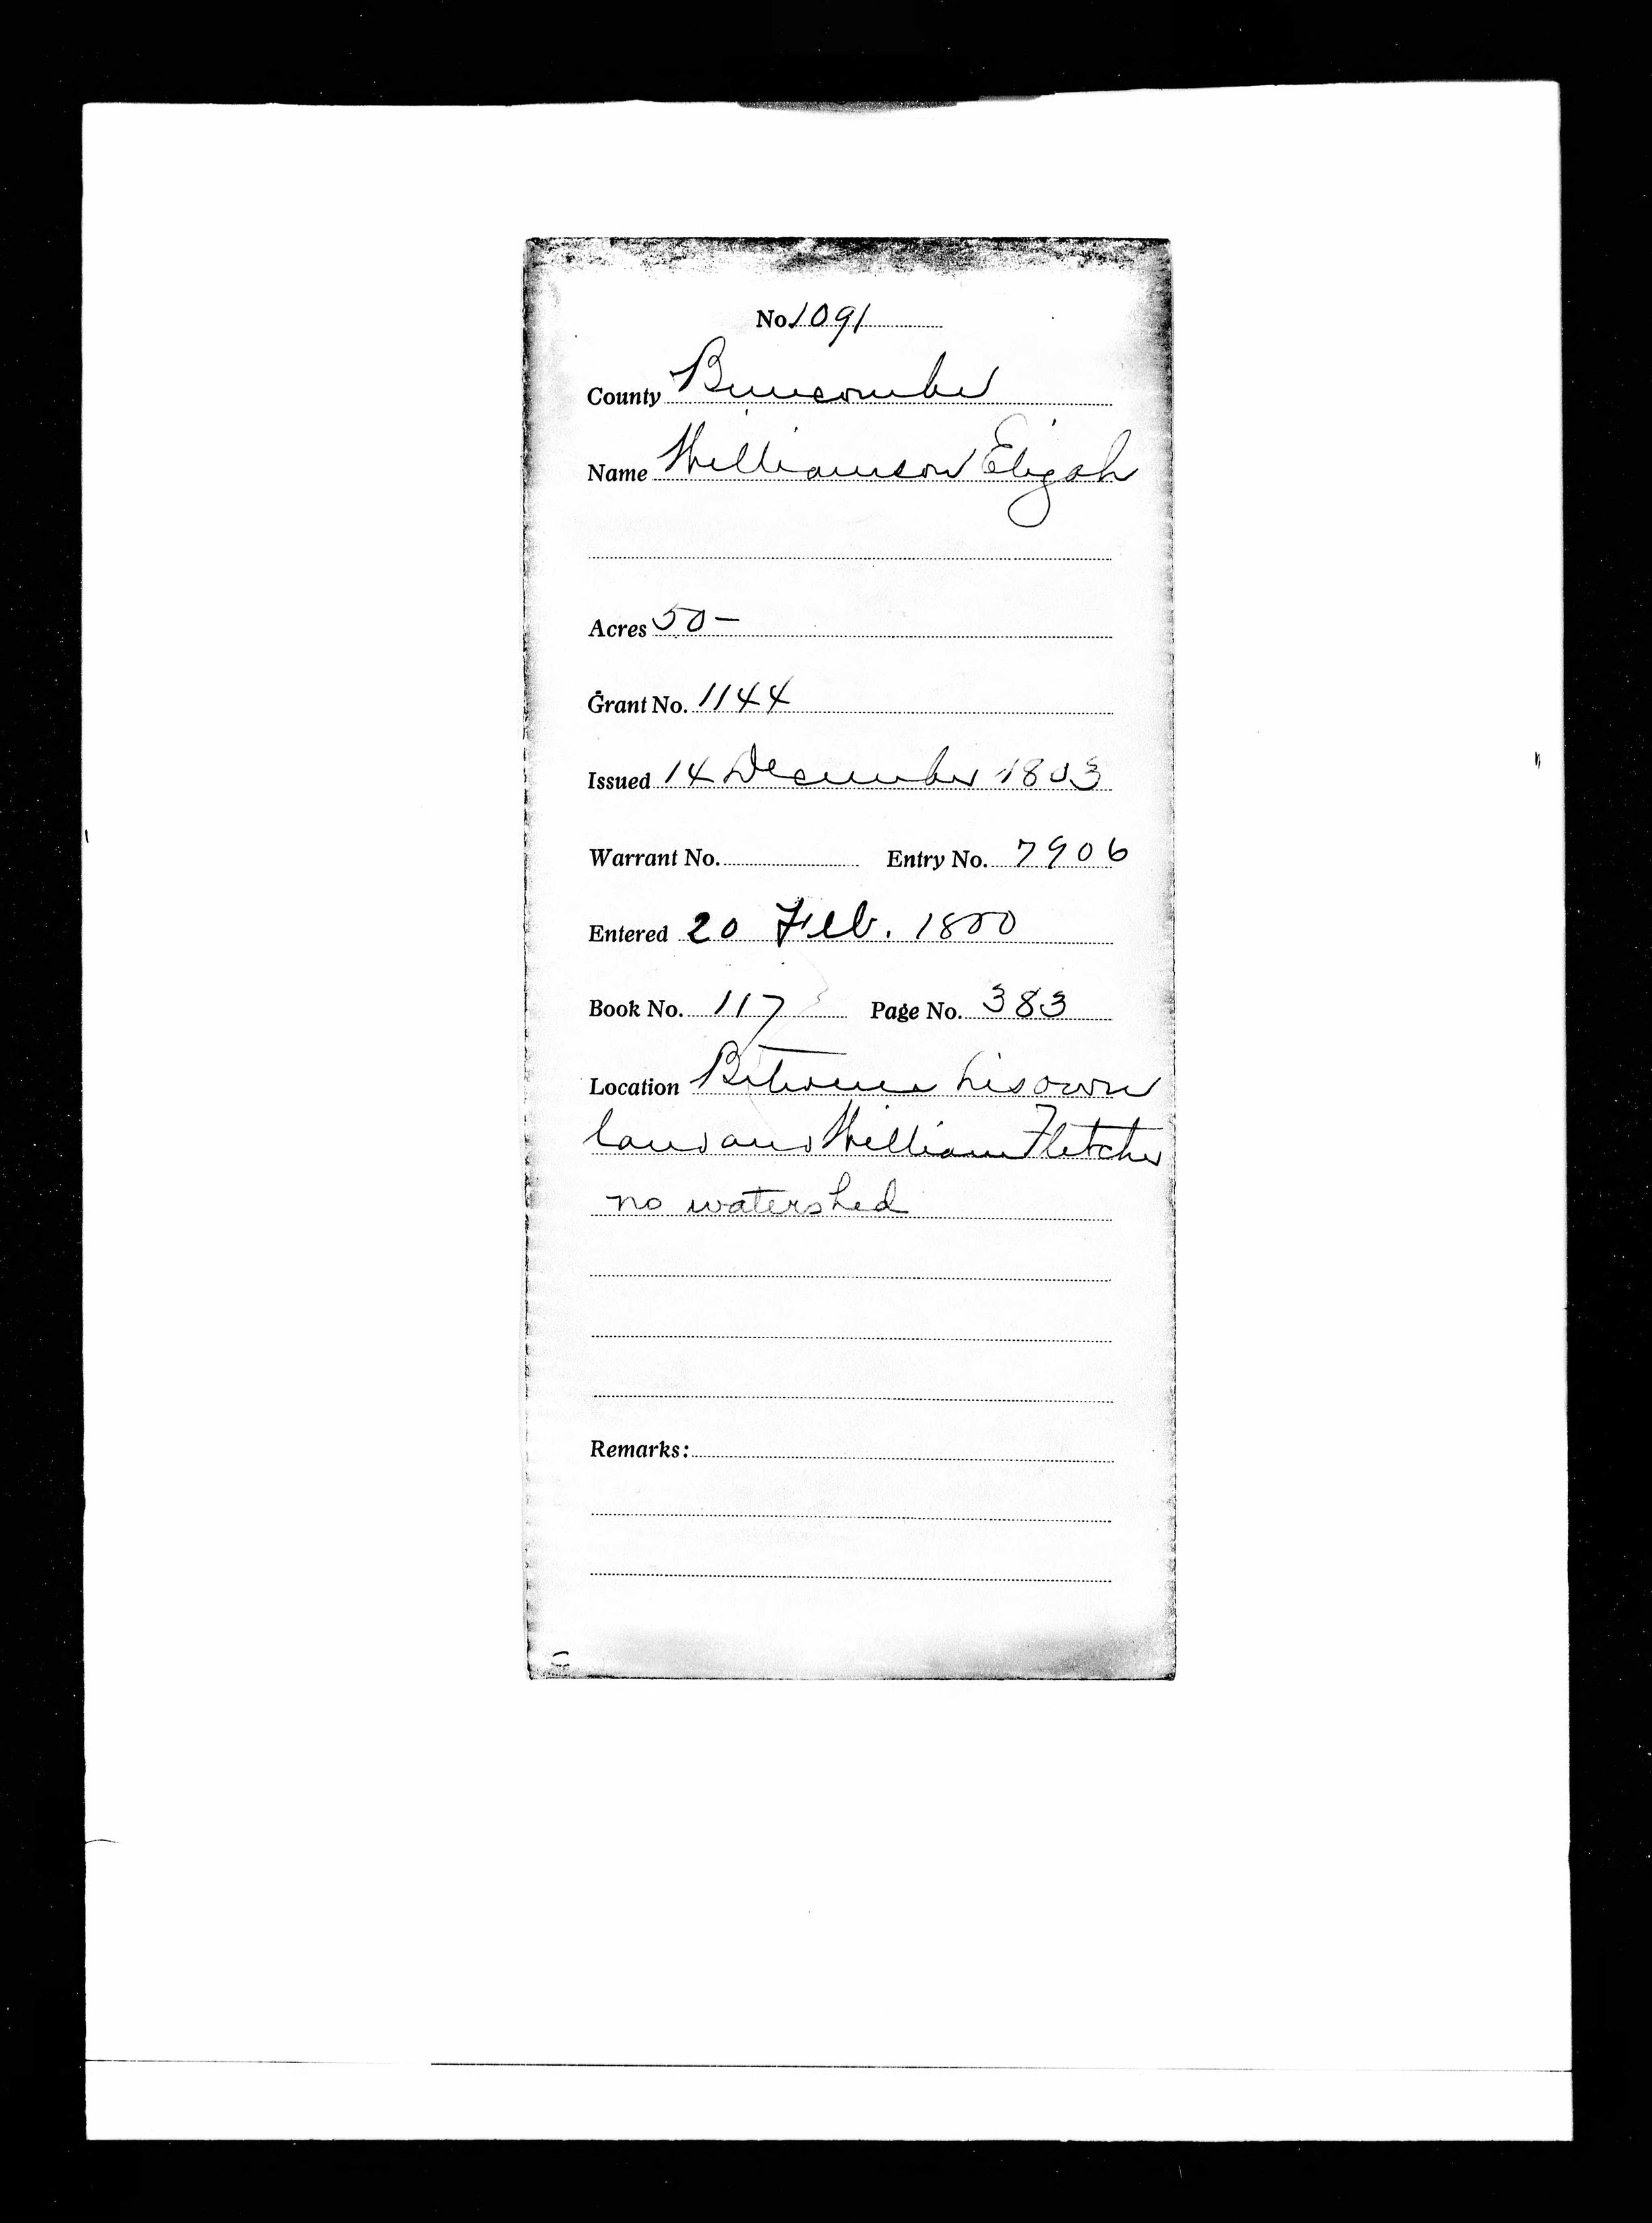 No. 1091
County Buncombe
Name Williamson Elijah
Acres 50 –
Grant No. 1144
Issued 14 December 1803
Warrant No. Entry No. 7906
Entered 20 Feb. 1800
Book No. 117 Page No. 383
Location Between his own
land and William Fletcher
no watershed
Remarks: